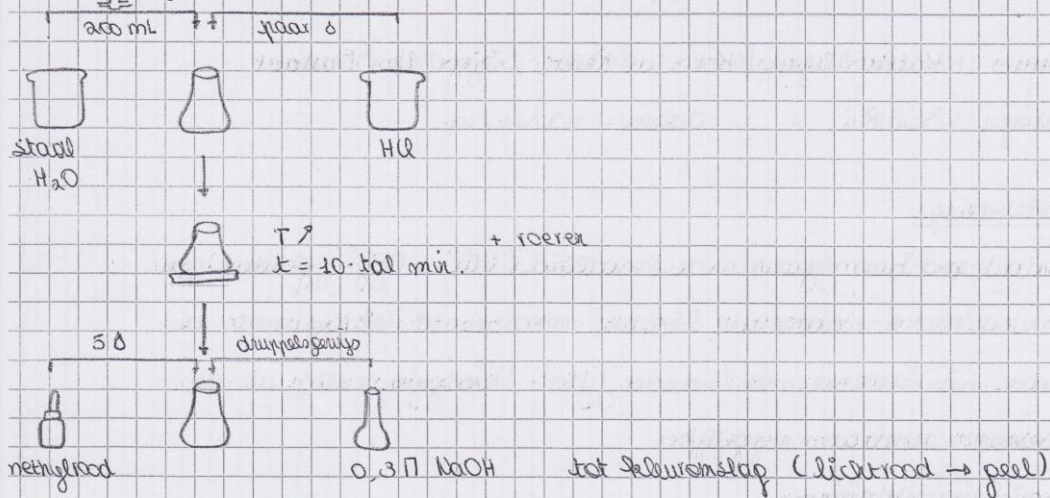 200 mL paar δ
staal HCl
H₂O
T ↗ + roeren
t = 10-tal min
5 δ druppelsgewijs
methylrood 0,3M NaOH tot kleuromslag (lichtrood → geel)